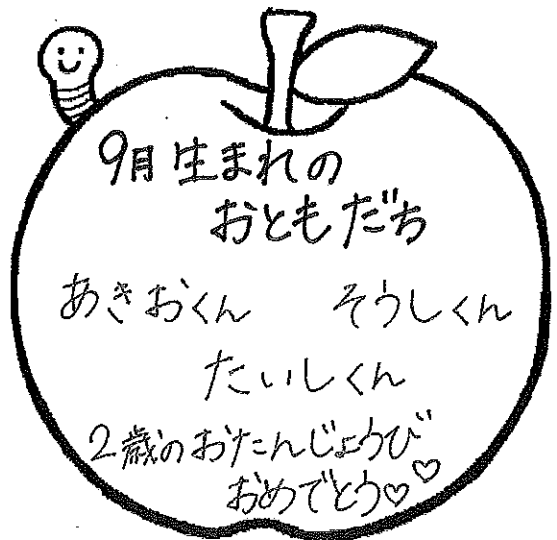 9月生まれの
おともだち
あきおくん　そうしくん
たいしくん
2歳のおたんじょうび
おめでとう♡♡